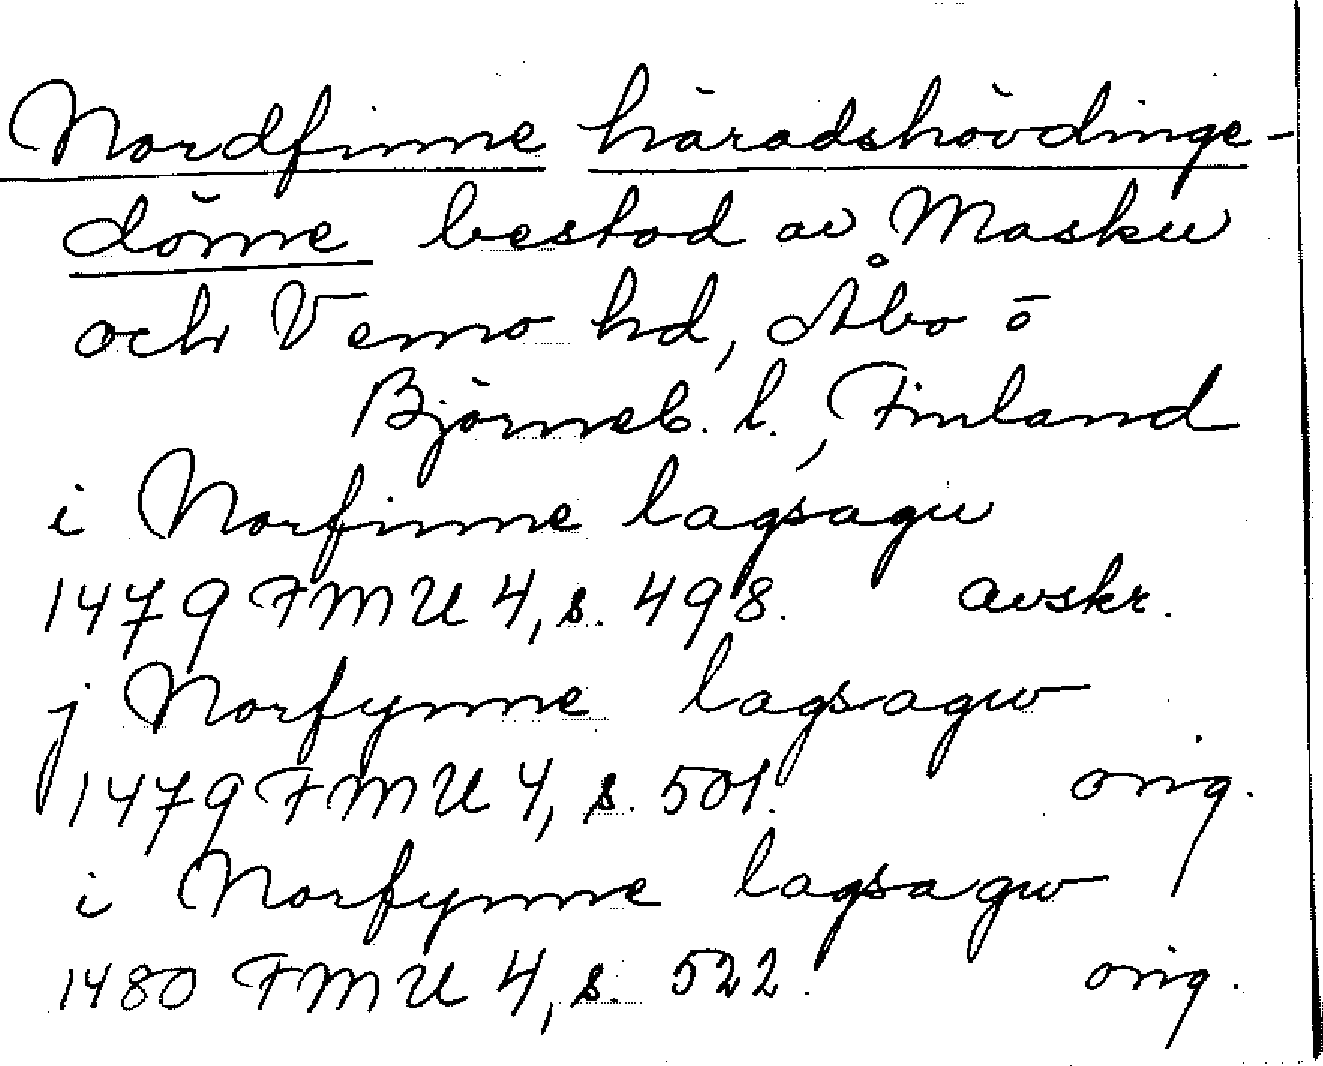 Nordfinne häradshövdinge-
döme bestod av Masku
och Vemo hd, Åbo o
Björneb. l., Finland
i Norfinne lagsagu
1479 FMU 4, s. 498. avskr.
j Norfynne lagsagw
1479 FMU 4, s. 501. orig.
i Norfynne lagsagw
1480 FMU 4, s. 522. orig.